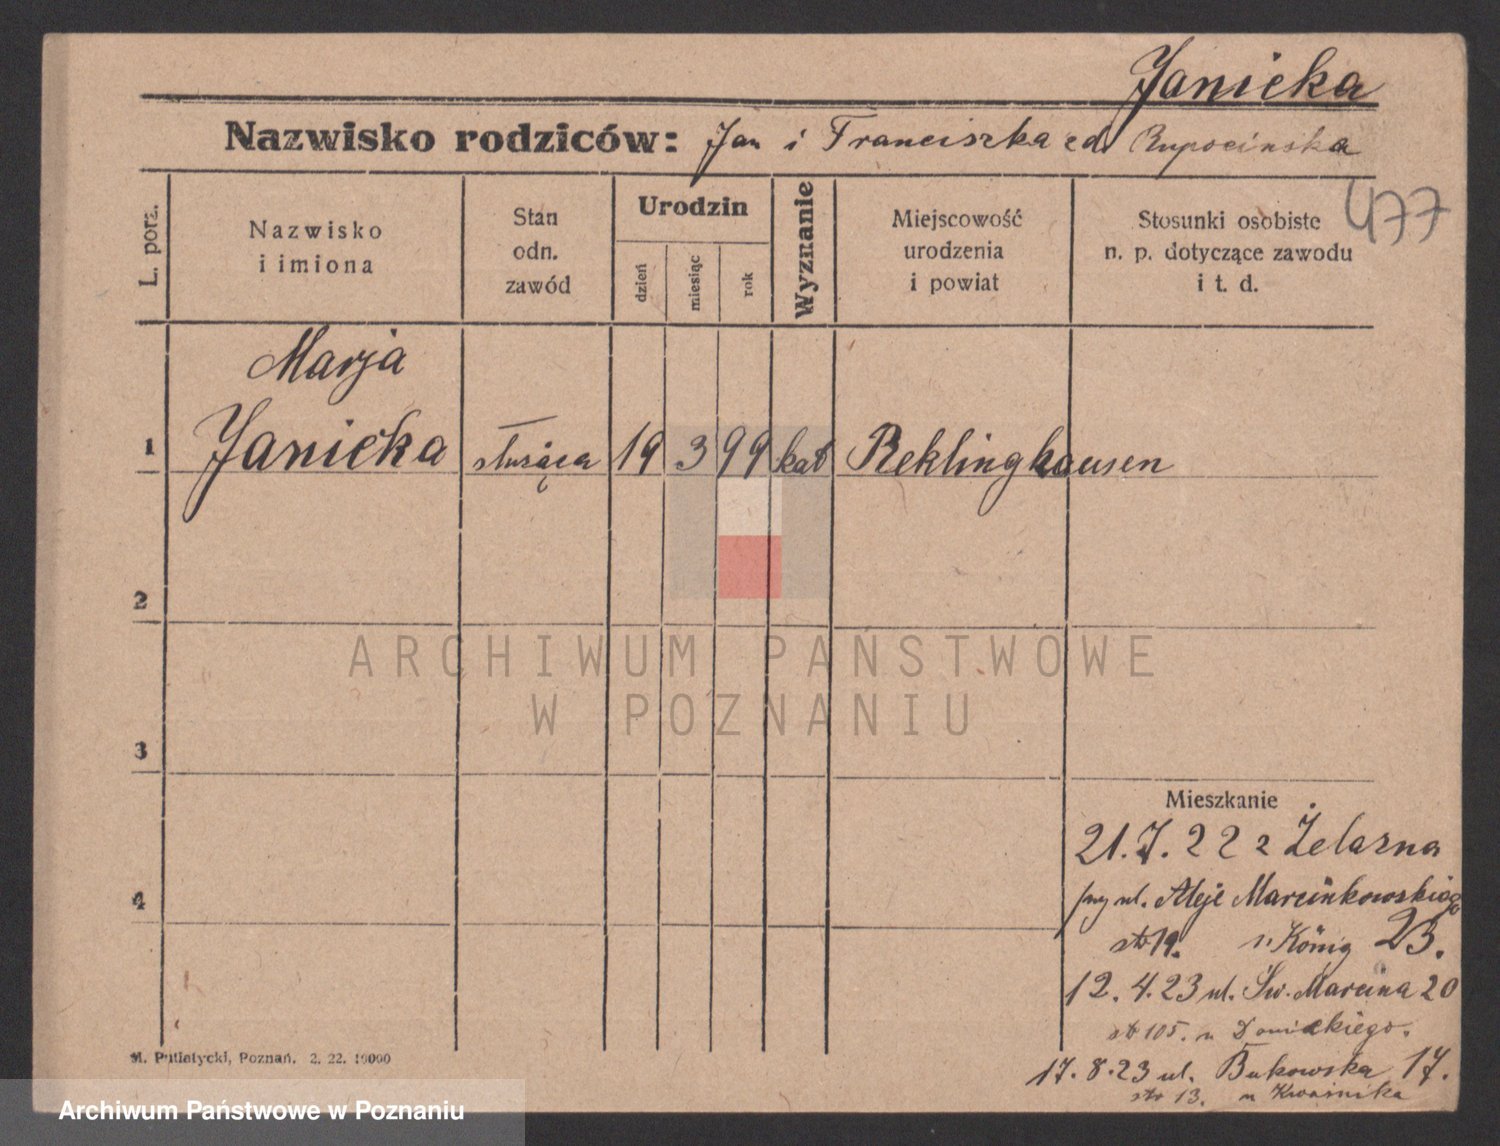 Janicka
Nazwisko rodziców: Jan i Franciszka zd. Rupocinska
477
L. porz.
Nazwisko
i imiona
Stan
odn.
zawód
Urodzin
dzień
miesiąc
rok
Wyznanie
Miejscowość
urodzenia
i powiat
Stosunki osobiste
n. p. dotyczące zawodu
i t. d.
Marja
1 Janicka służąca 19 3 99 kat Reklinghausen
2
ARCHIWUM PAŃSTWOWE
W POZNANIU
3
Mieszkanie
21.7.22 z Żelazna
przy ul. Aleje Marcinkowskiego
4
str 19. König 23.
12.4.23 ul. Św. Marcina 20
str 105.
M. Putiatycki, Poznań. 2. 22. 10000
17.8.23 ul. Bukowska 17.
str 13. u Kwaśnika
Archiwum Państwowe w Poznaniu